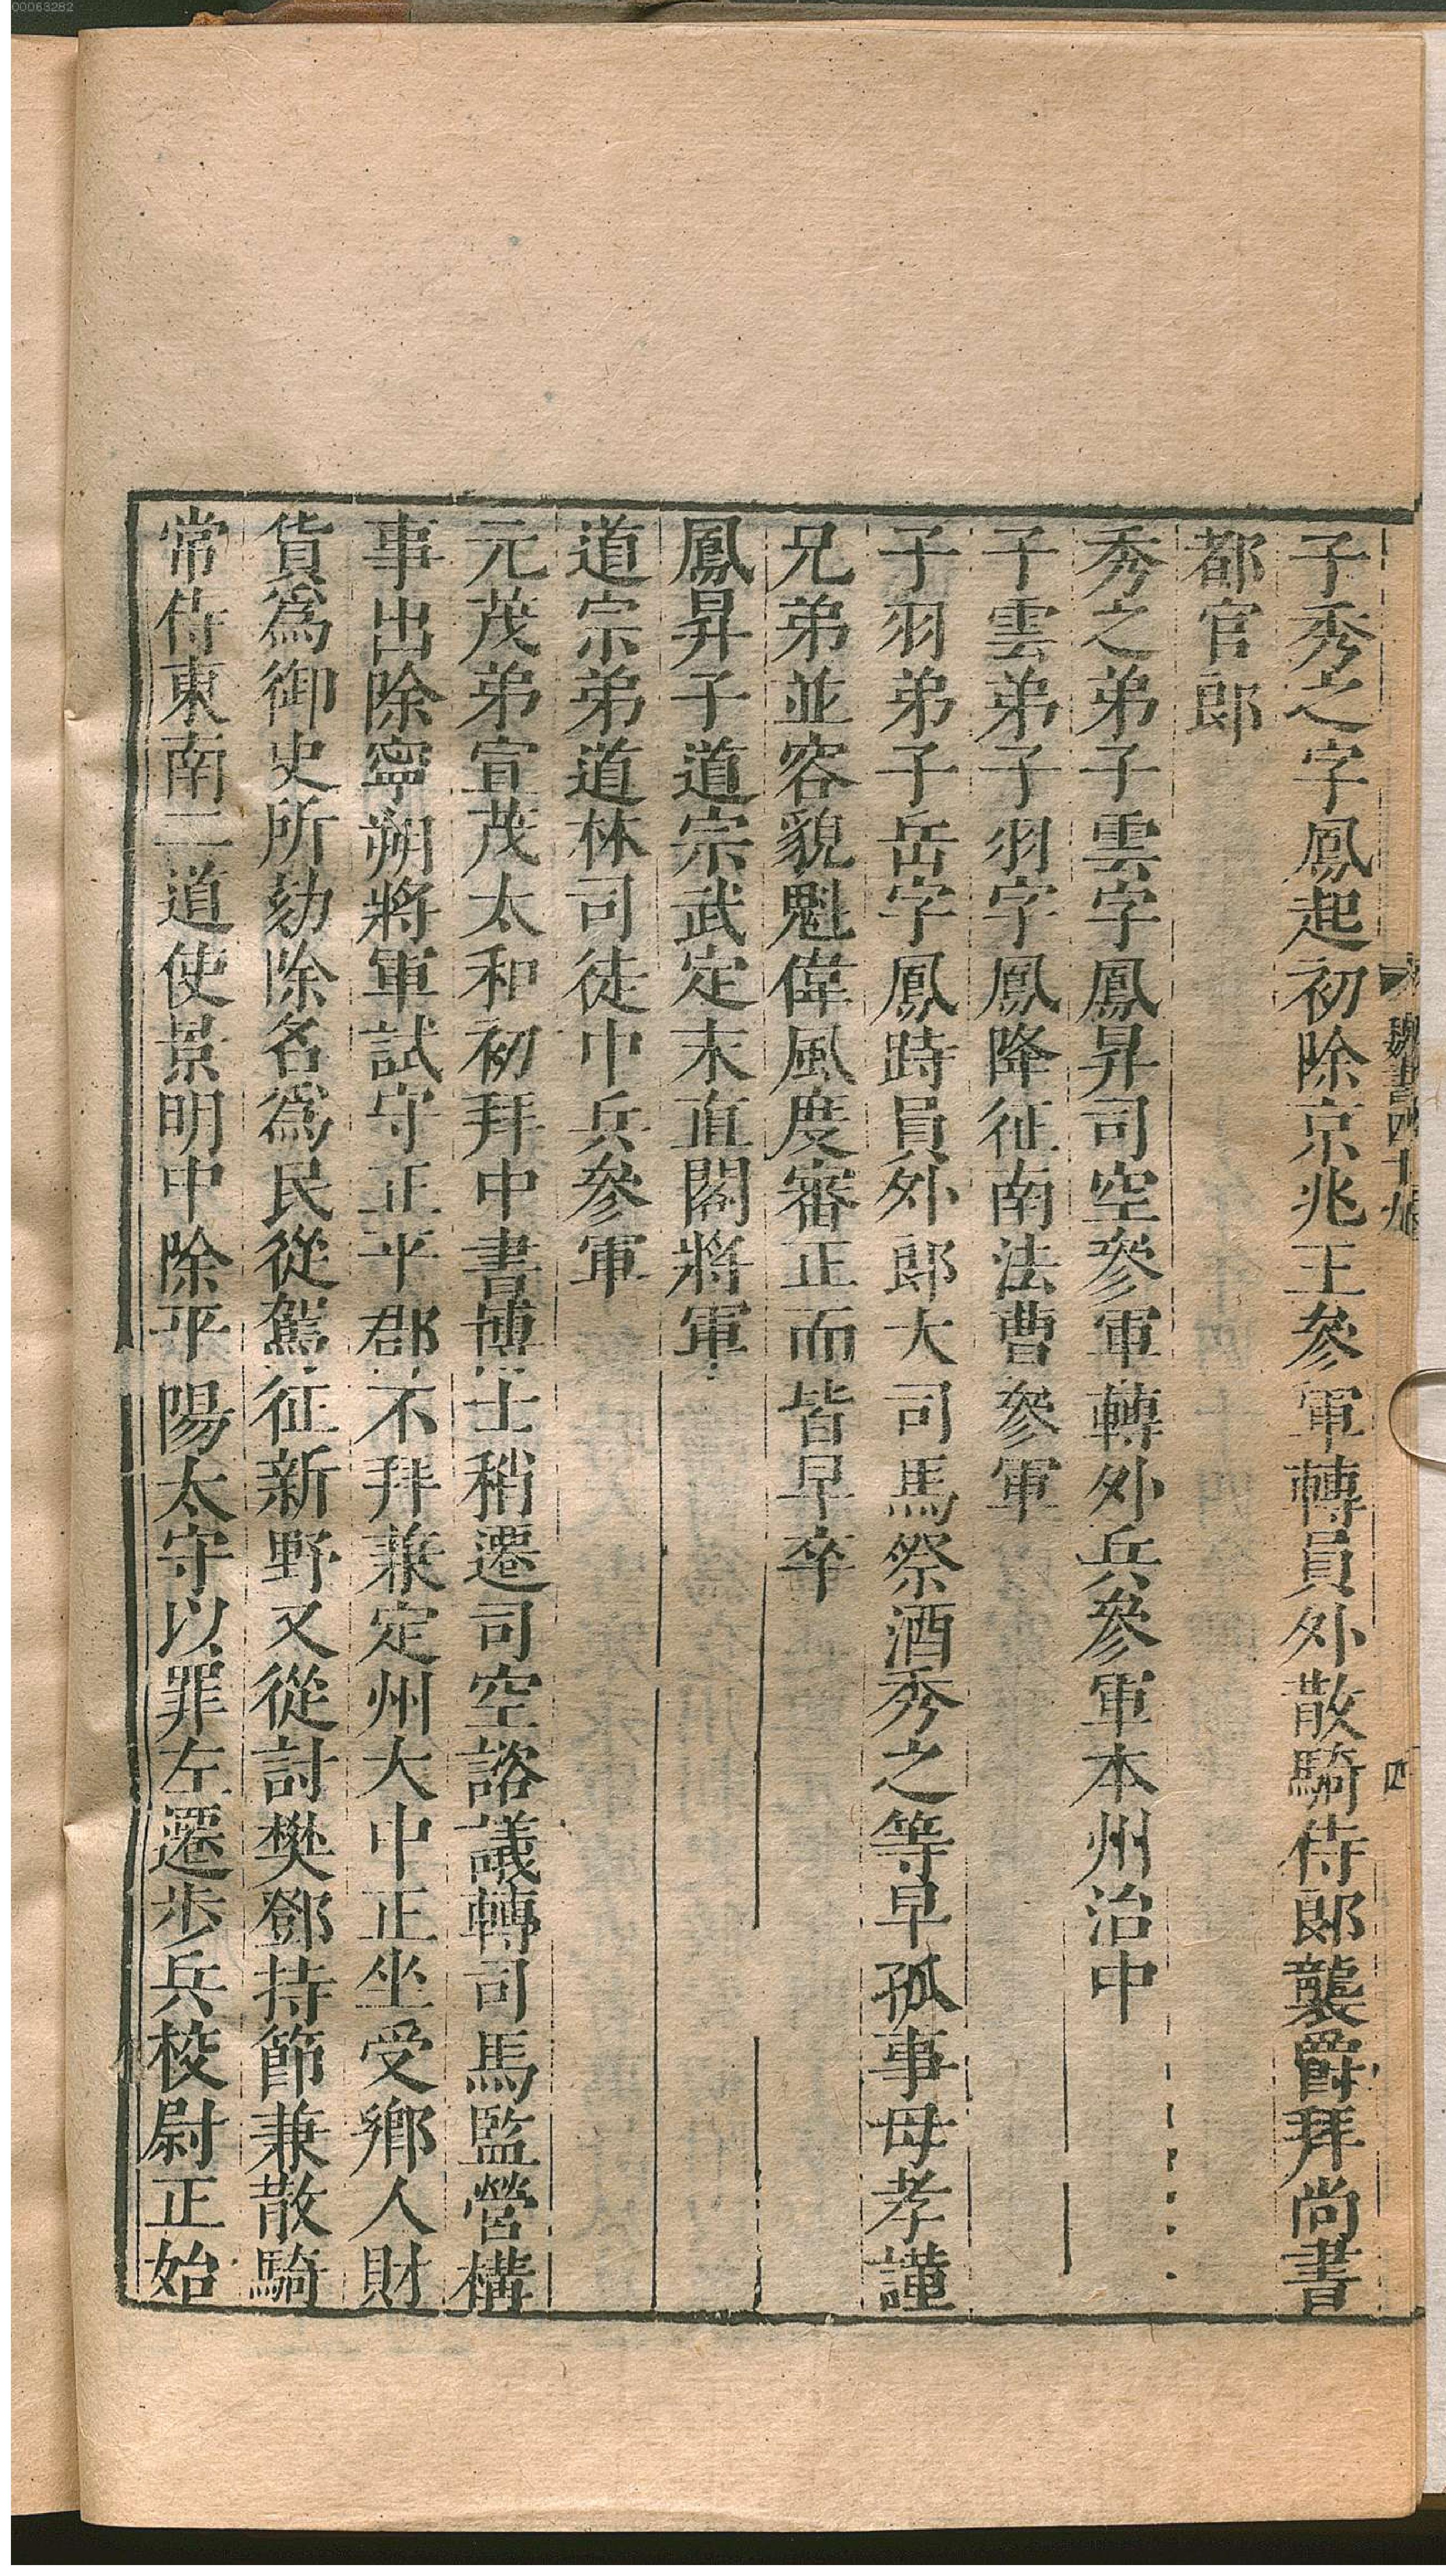 00063282
魏書四十九
四
子秀之字鳳起初除京兆王參軍轉員外散騎侍郎襲爵拜尚書
都官郎
秀之弟子雲字鳳昇司空參軍轉外兵參軍本州治中
子雲弟子羽字鳳降征南法曹參軍
子羽弟子岳字鳳時員外郎大司馬祭酒秀之等早孤事母孝謹
兄弟並容貌魁偉風度審正而皆早卒
鳳昇子道宗武定末直閤將軍
道宗弟道林司徒中兵參軍
元茂弟宣茂太和初拜中書博士稍遷司空諮議轉司馬監營構
事出除寧朔將軍試守正平郡不拜兼定州大中正坐受鄉人財
貨為御史所劾除名為民從駕征新野又從討樊鄧持節兼散騎
常侍東南二道使景明中除平陽太守以罪左遷步兵校尉正始